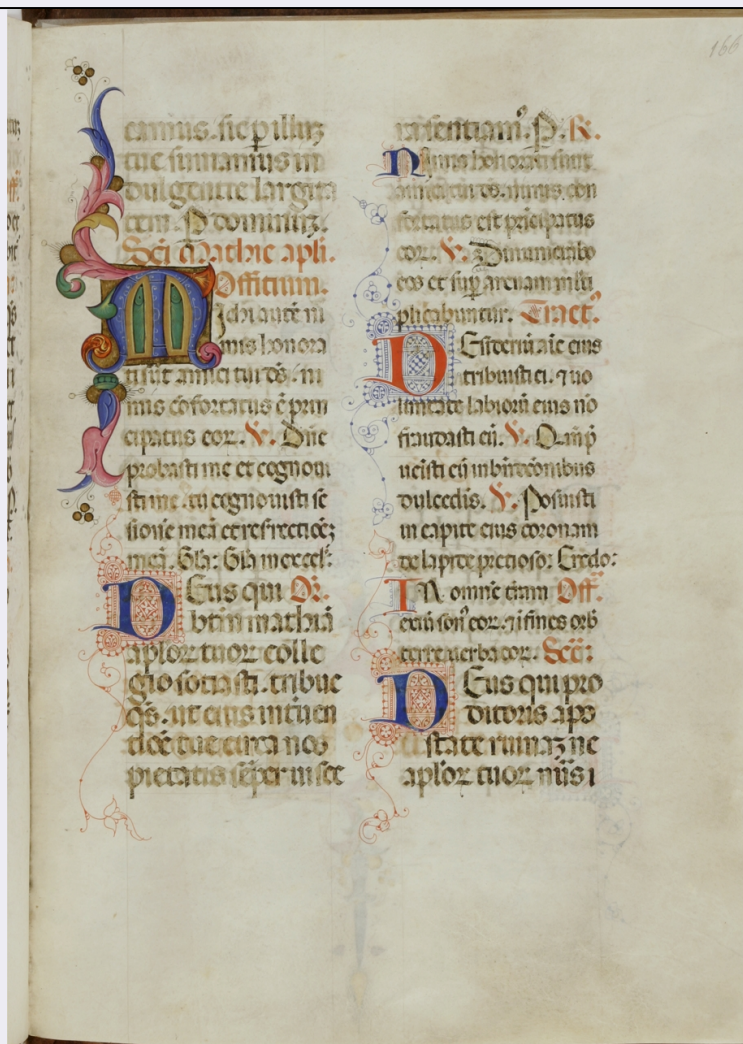 166
camus. sic p illuz
tue sumamus in
dulgentie largita
tem. P dominuz.
Sci Mathie apli.
Officium.
Michi autē ni
mis honora
ti sūt amici tui ds. ni
mis cōfortatus ē prin
cipatus eor. V. Dn̄e
probasti me et cognoui
sti me. tu cognouisti se
sionē meā et resrectiōez
meā. Gla: Gla in excel.
DEus qui Or.
btm mathiā
aplor tuor colle
gio sociasti. tribue
qs. ut eius interuen
tiōe tue circa nos
pietatis sēper uisce
ra sentiam. P. R.
Nimis honorati sunt
amici tui ds. nimis con
fortatus est prīcipatus
eor. V. Dinumerabo
eos et sup arenam multi
plicabuntur. Tract.
DEsideriū aīe eius
tribuisti ei. ⁊ uo
luntate labiorū eius nō
fraudasti eū. V. Qm̄ p
uenisti eū in bn̄dictōnibus
dulcedīs. V. Posuisti
in capite eius coronam
de lapide precioso: Credo:
IN omnē terram Off.
exiu son eor. ⁊ i fines orb
terre uerba eor. Sec:
DEus qui pro
ditoris apo
state ruinaz ne
aplor tuor nūs i